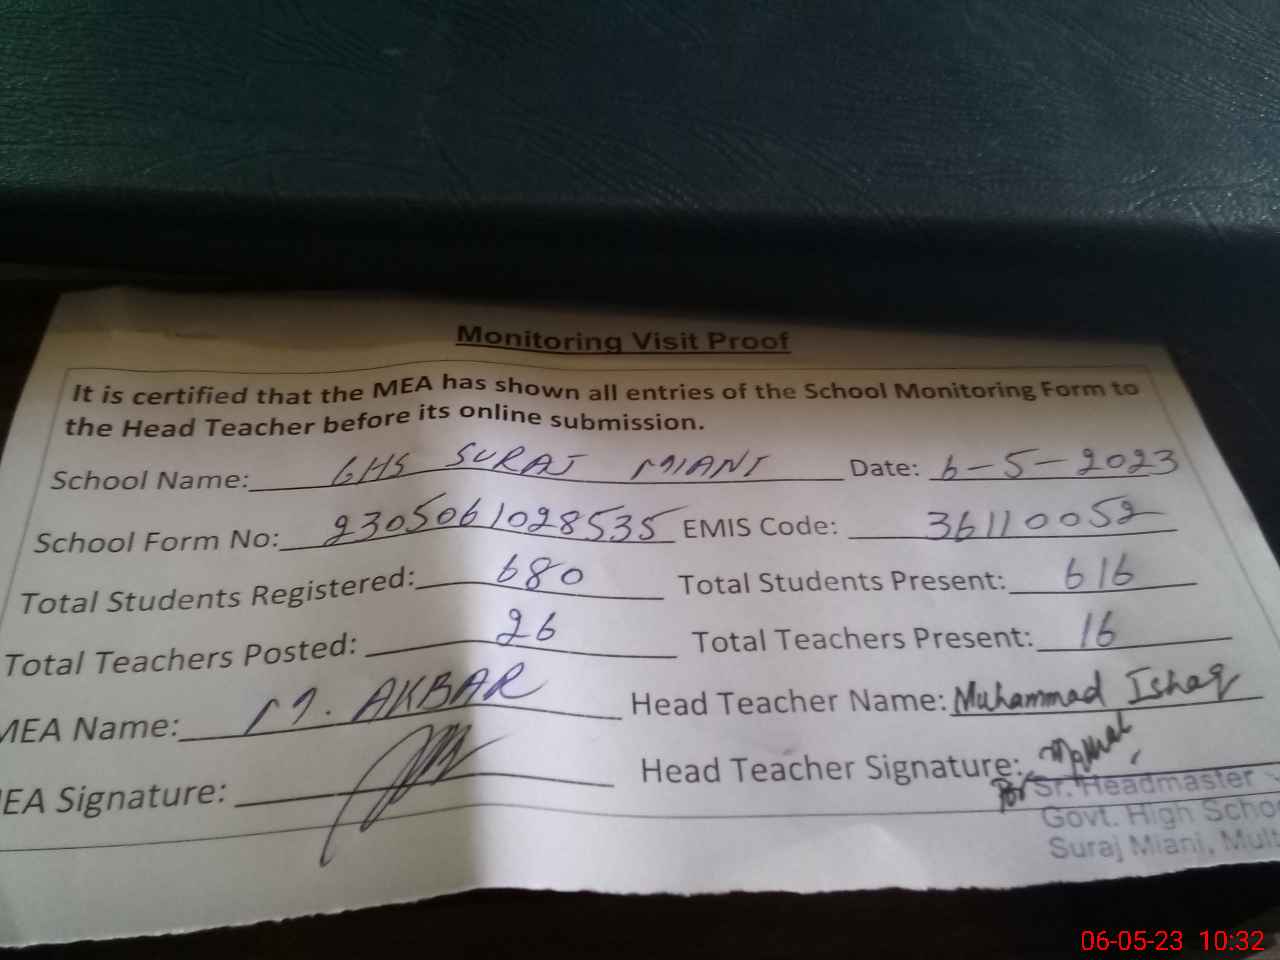 Monitoring Visit Proof
It is certified that the MEA has shown all entries of the School Monitoring Form to
the Head Teacher before its online submission.
School Name: GHS SURAJ MIANI Date: 6-5-2023
School Form No: 2305061028535 EMIS Code: 36110052
Total Students Registered: 680 Total Students Present: 616
Total Teachers Posted: 26 Total Teachers Present: 16
MEA Name: M. AKBAR Head Teacher Name: Muhammad Ishaq
EA Signature: Head Teacher Signature:
For Sr. Headmaster
Govt. High Scho
Suraj Miani, Mult
06-05-23 10:32